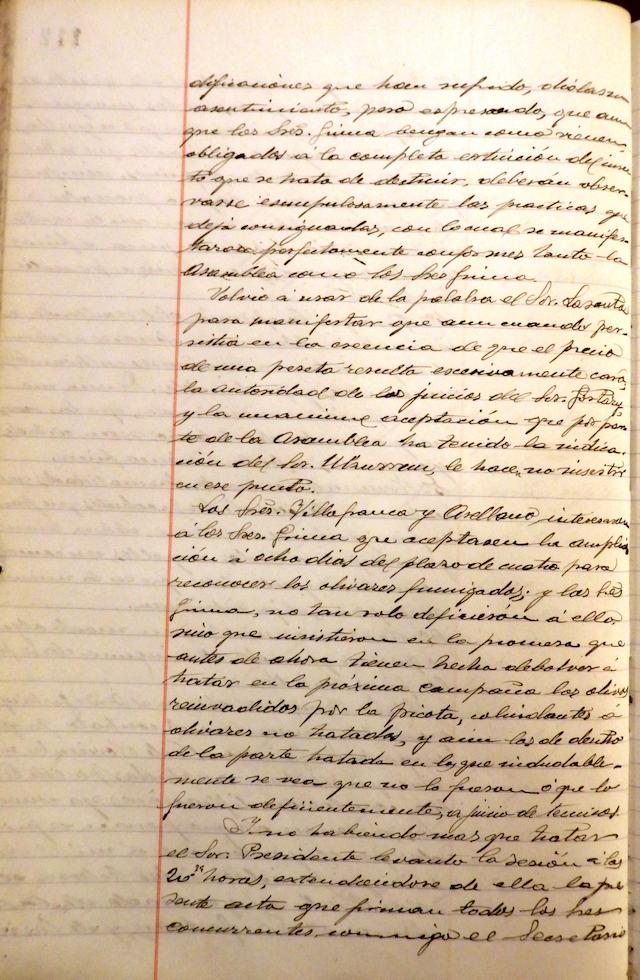 dificaciones que han sufrido, dióla su
asentimiento, pero espresando, que aun
que los Sres. Gima bengan como vienen
obligados a la completa estinción del insec
to que se trata de destruir, deberán obser
varse escrupulosamente las practicas que
deja consignadas, con lo cual se manifes
taron perfectamente conformes tanto la
Asamblea como los Sres Gima.
Volvió á usar de la palabra el Sor. Lasanta
para manifestar que aun cuando per-
sistia en la creencia de que el precio
de una peseta resulta escesivamente caro,
la autoridad de los juicios del Sor.
y la unanime aceptación que por par
te de la Asamblea ha tenido la indica
ción del Sor. Uhurrun, le hacen no insistir
en ese punto.
Los Sres. Villafranca y Arellano interesaron
á los Sres. Gima que aceptasen la amplia
ción á ocho dias del plazo de cuatro para
reconocer los olivares fumigados; y los Sres
Gima, no tan solo defirieron á ello
sino que insistieron en la promesa que
antes de ahora tienen hecha de bolver á
tratar en la próxima campaña los olivos
reinvadidos por la picota, colindantes á
olivares no tratados, y aun los de dentro
de la parte tratada en los que indudable-
mente se vea que no lo fueron ó que lo
fueron deficientemente, a juicio de tecnicos.
Y no habiendo mas que tratar
el Sor. Presidente levantó la sesión á las
20 horas, extendiendose de ella la pre
sente acta que firman todos los Sres
concurrentes conmigo el Secretario